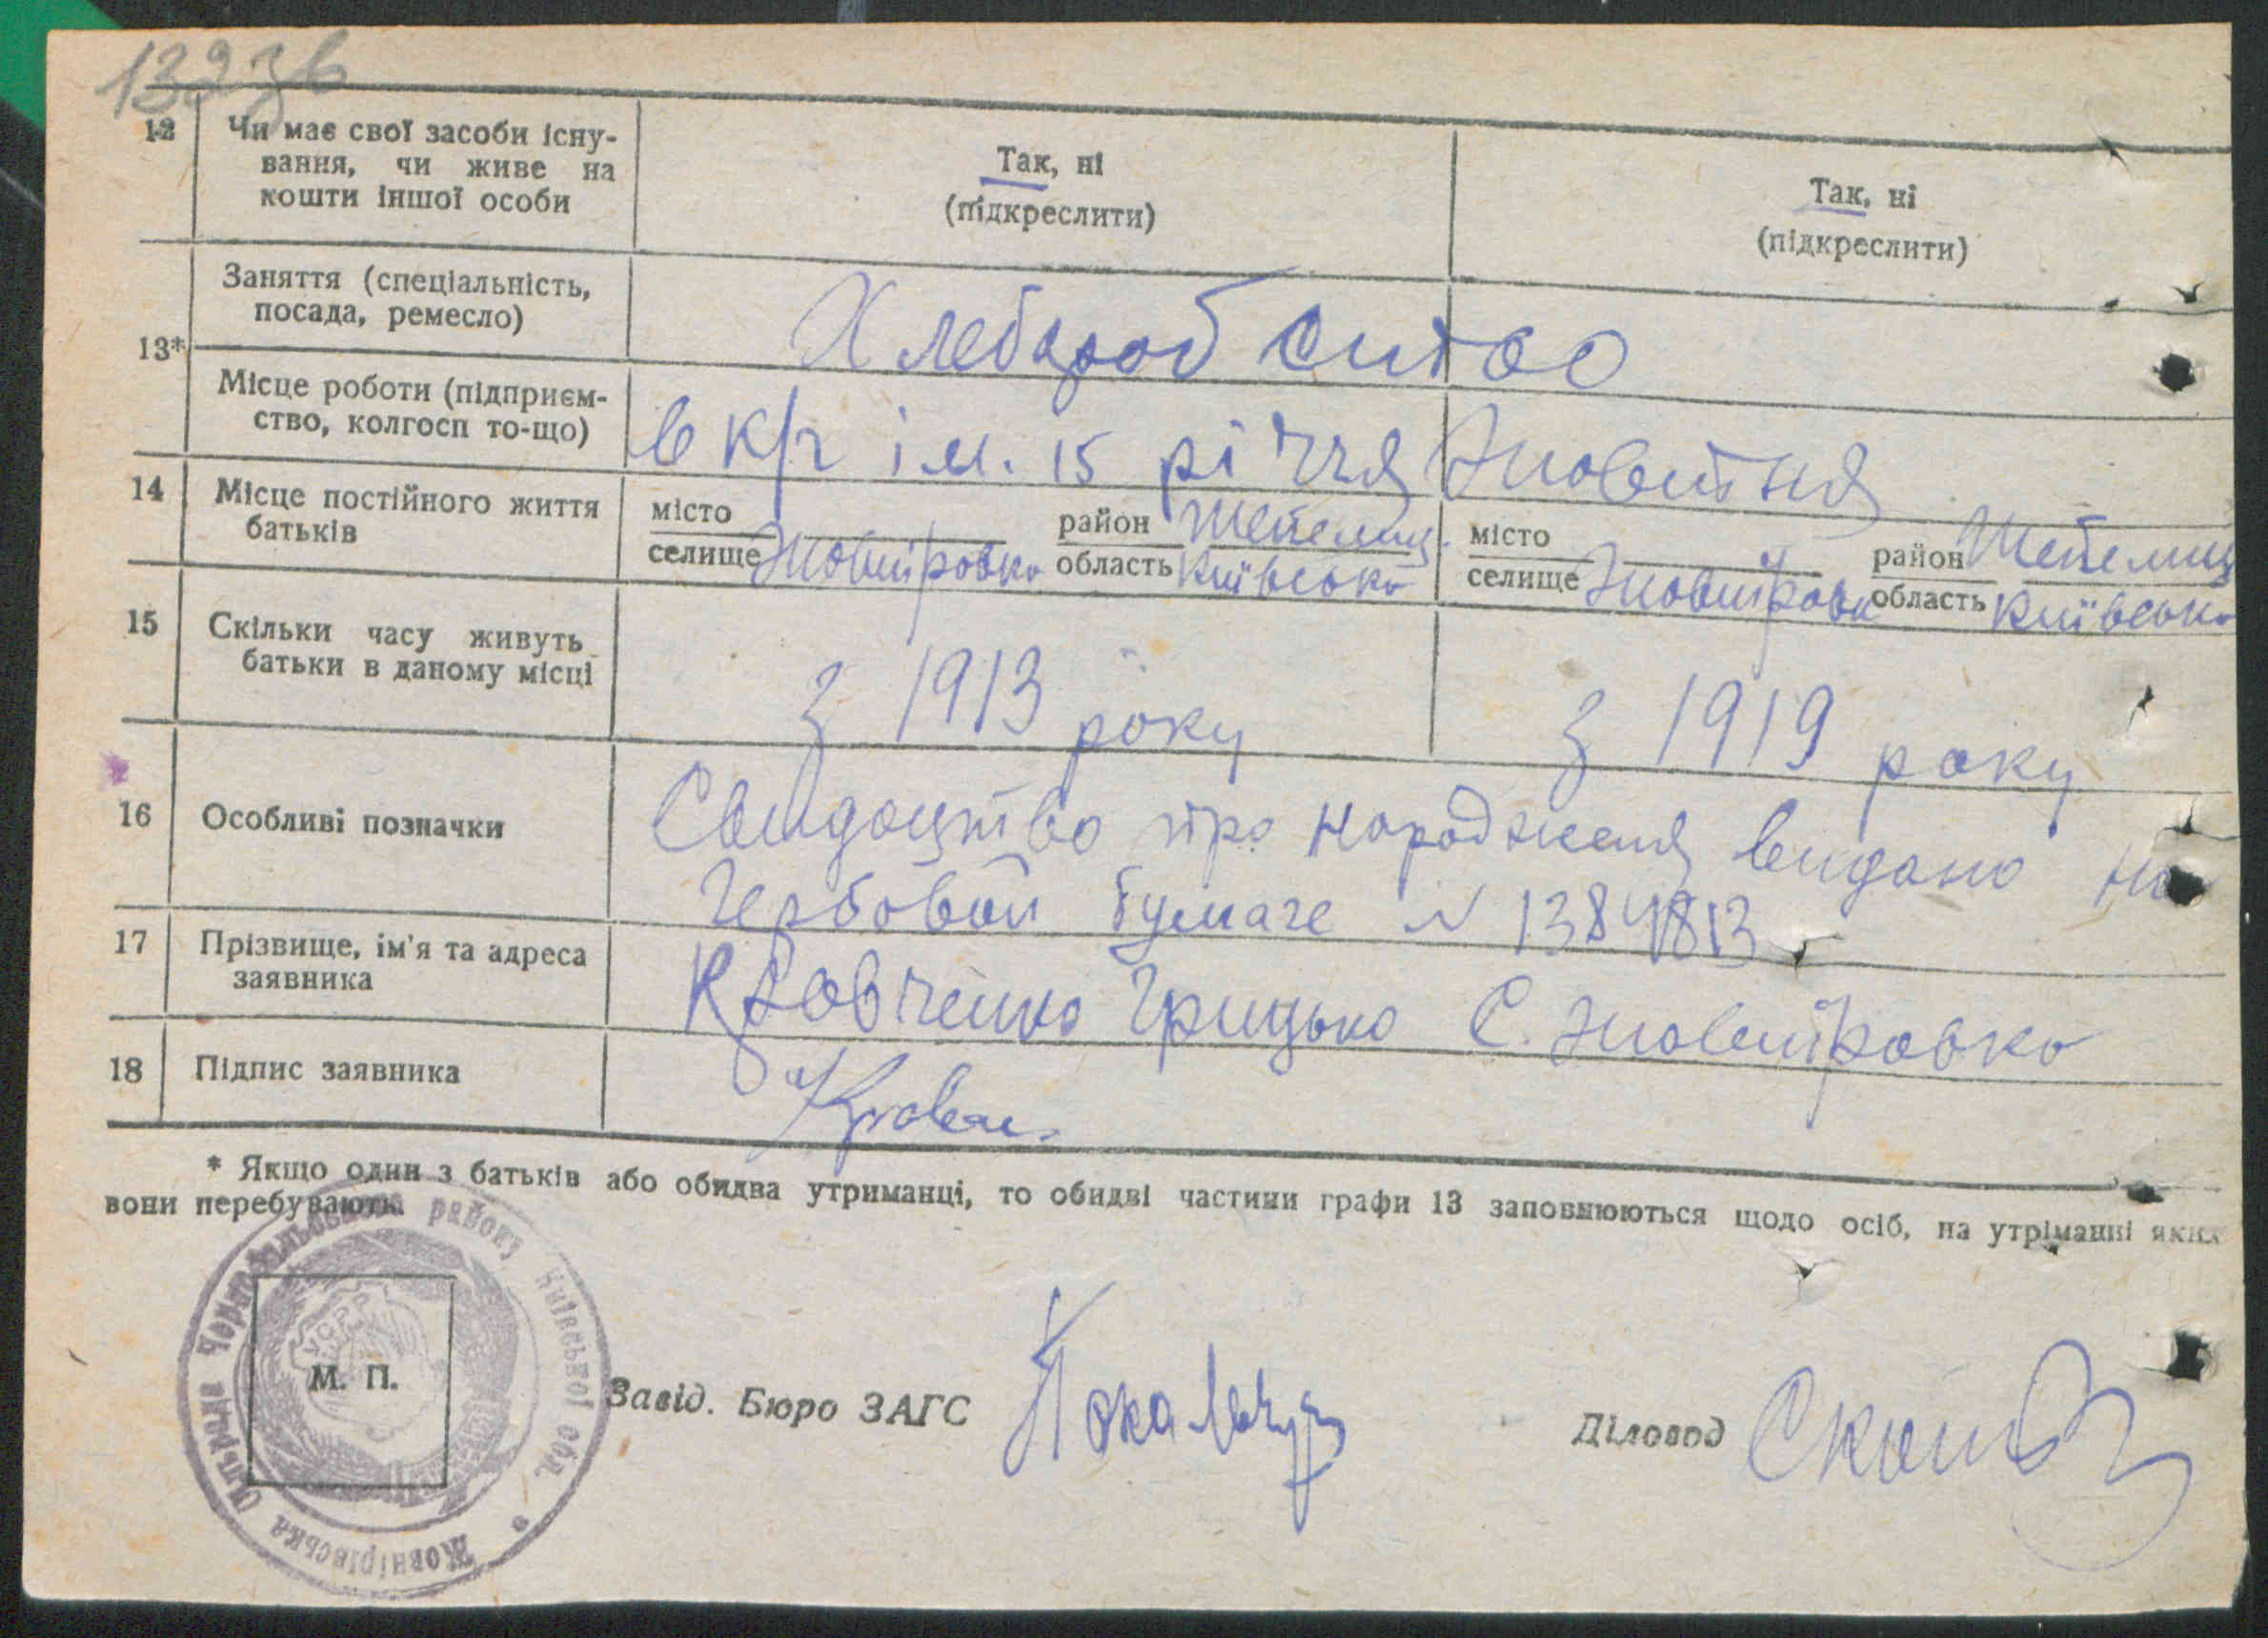 132зв
12 Чи має свої засоби існу-
вання, чи живе на
кошти іншої особи
Так, ні
(підкреслити)
Так, ні
(підкреслити)
13*
Заняття (спеціальність,
посада, ремесло)
Хлебароб
Місце роботи (підприєм-
ство, колгосп то-що)
в к/г ім. 15 річчя Жовтня
14 Місце постійного життя
батьків
місто
селище Жовнировка
район Шепелиц.
область Київська
місто
селище Жовнировка
район Шепелиц
область Київська
15 Скільки часу живуть
батьки в даному місці
з 1913 року
з 1919 року
16 Особливі позначки
Свидоцтво про народженя видано на
гербовой бумаге N 1384813
17 Прізвище, ім'я та адреса
заявника
Кравченко Грицько С. Жовнировка
18 Підпис заявника
Кравч.
* Якщо один з батьків або обидва утриманці, то обидві частини графи 13 заповнюються щодо осіб, на утріманні яких
вони перебувають.
Жовнірівська сільрада Чорнобильського району Київської обл.
УСРР
М. П.
Завід. Бюро ЗАГС
Діловод